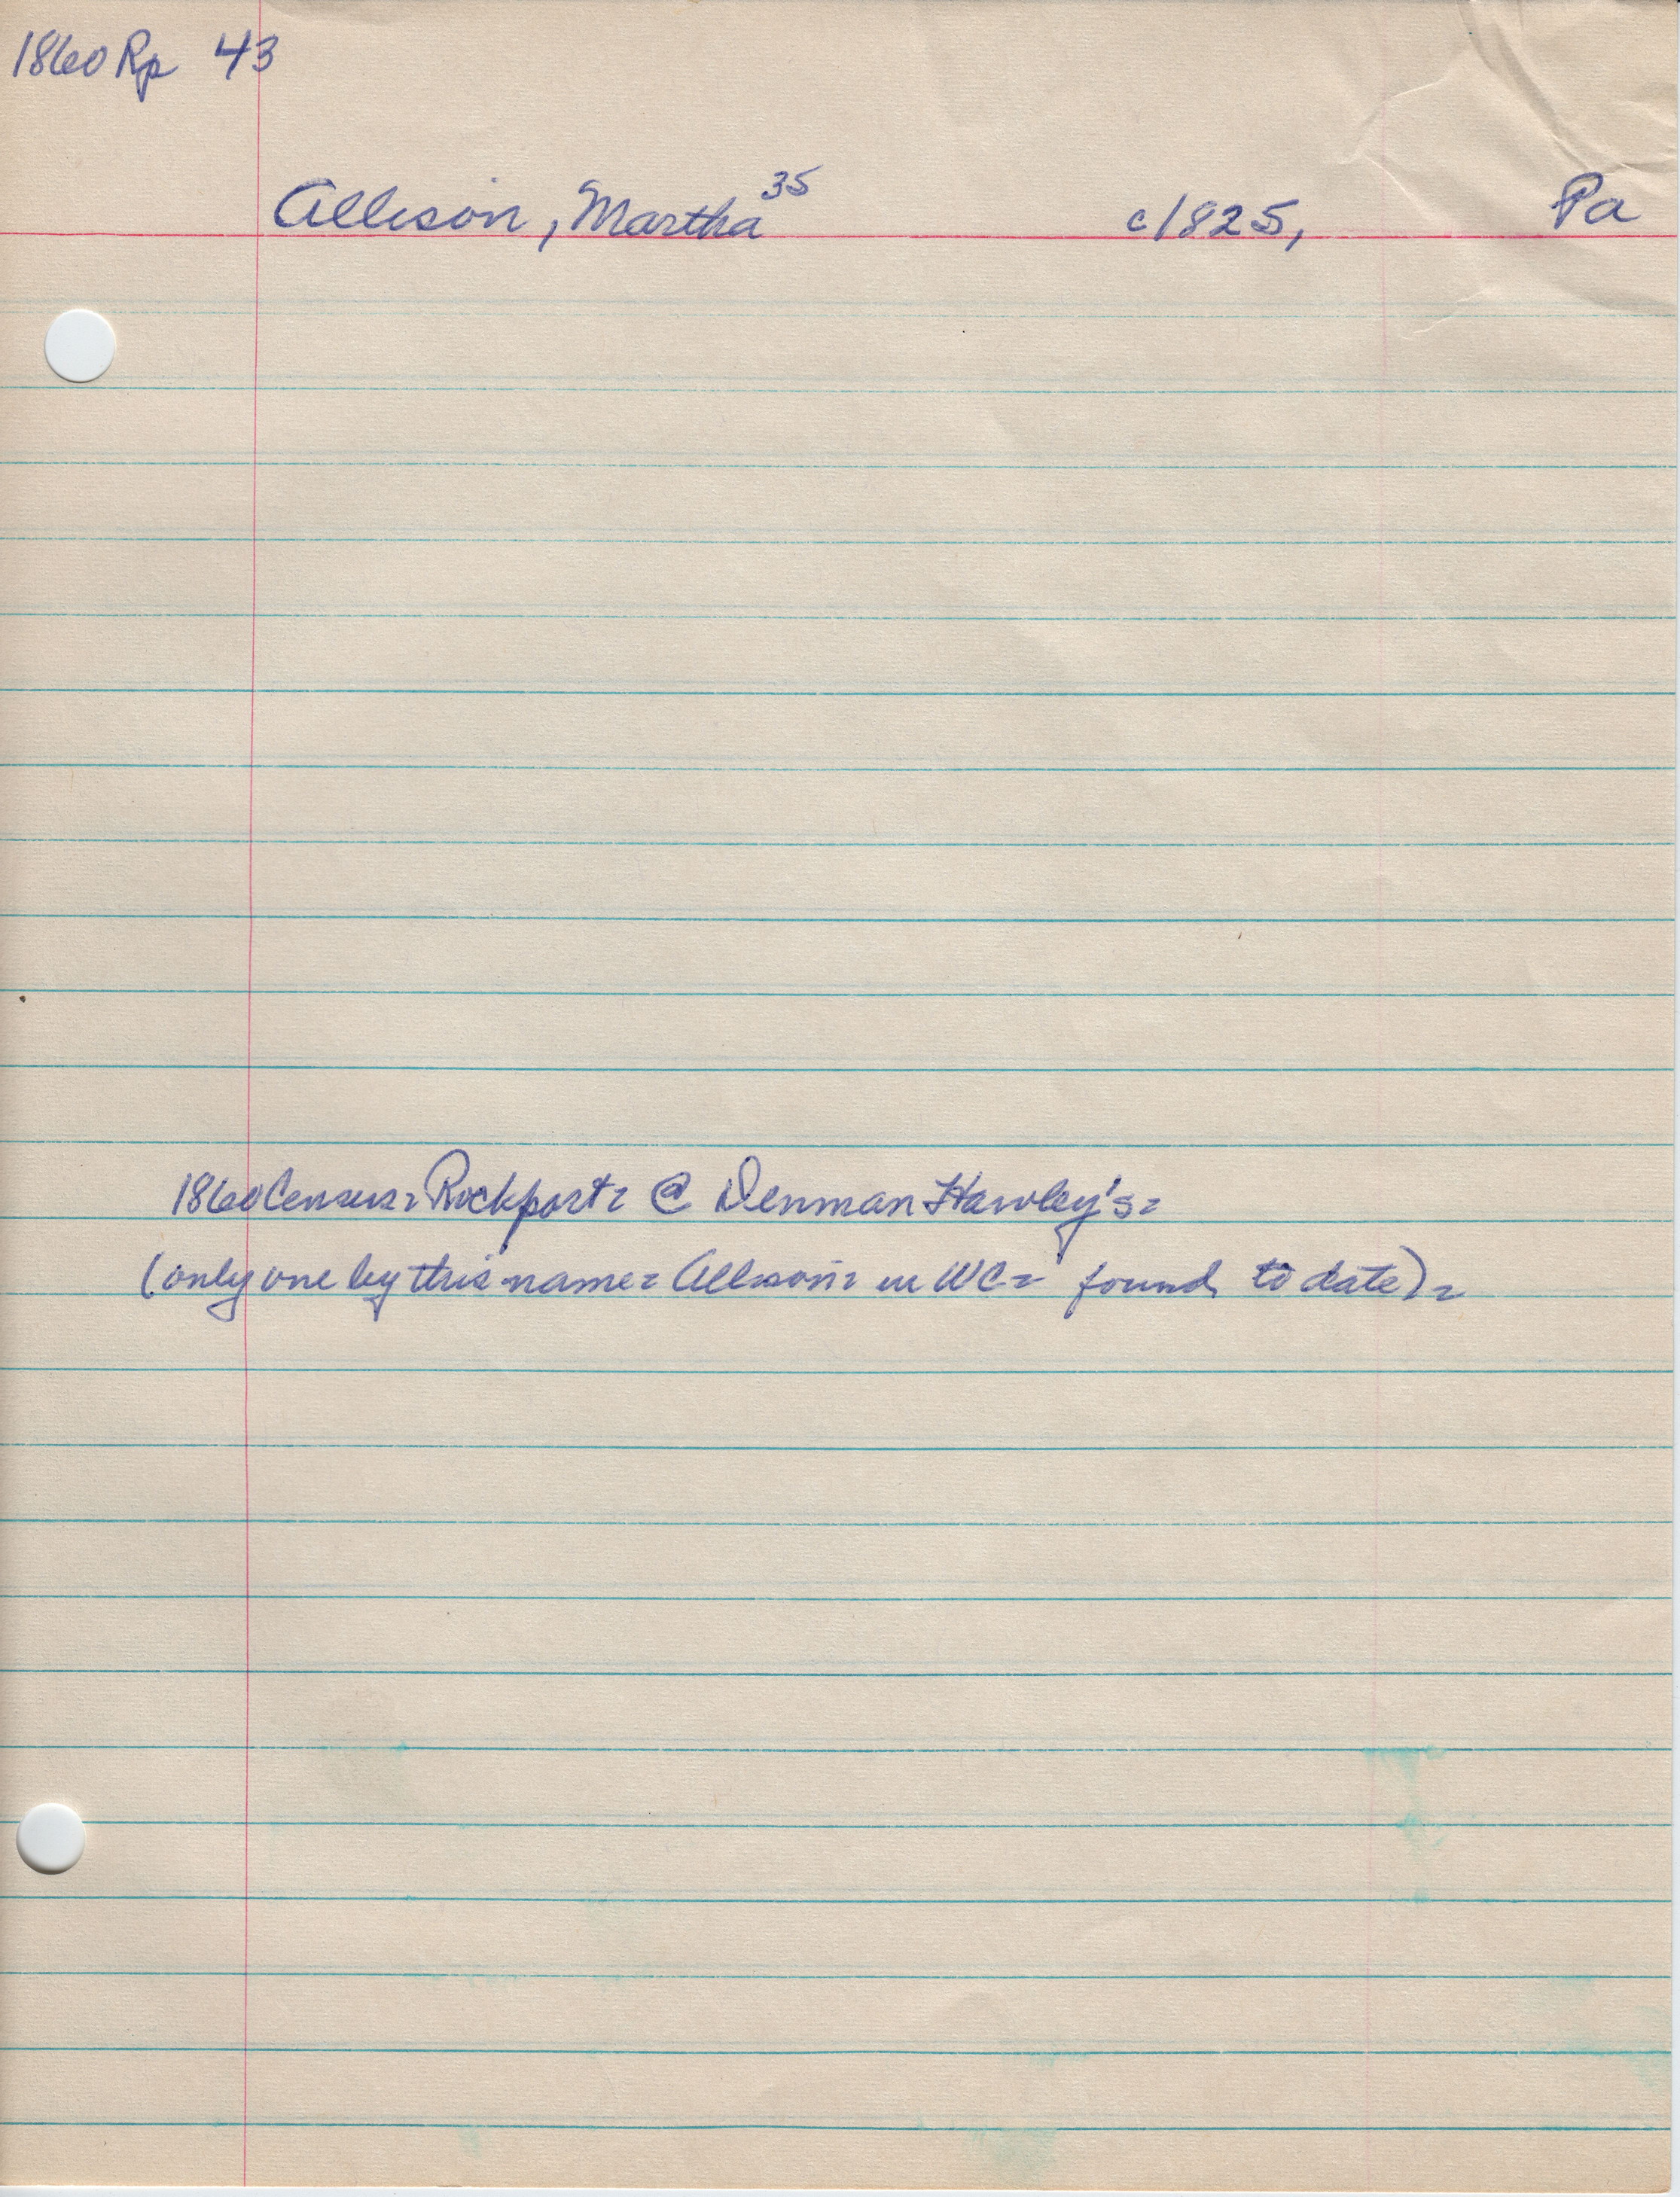 1860 Rp 43
Allison, Martha 35 c1825, Pa
1860 Census = Rockport = @ Denman Hawley's =
(only one by this name = Allison = in WC = found to date) =